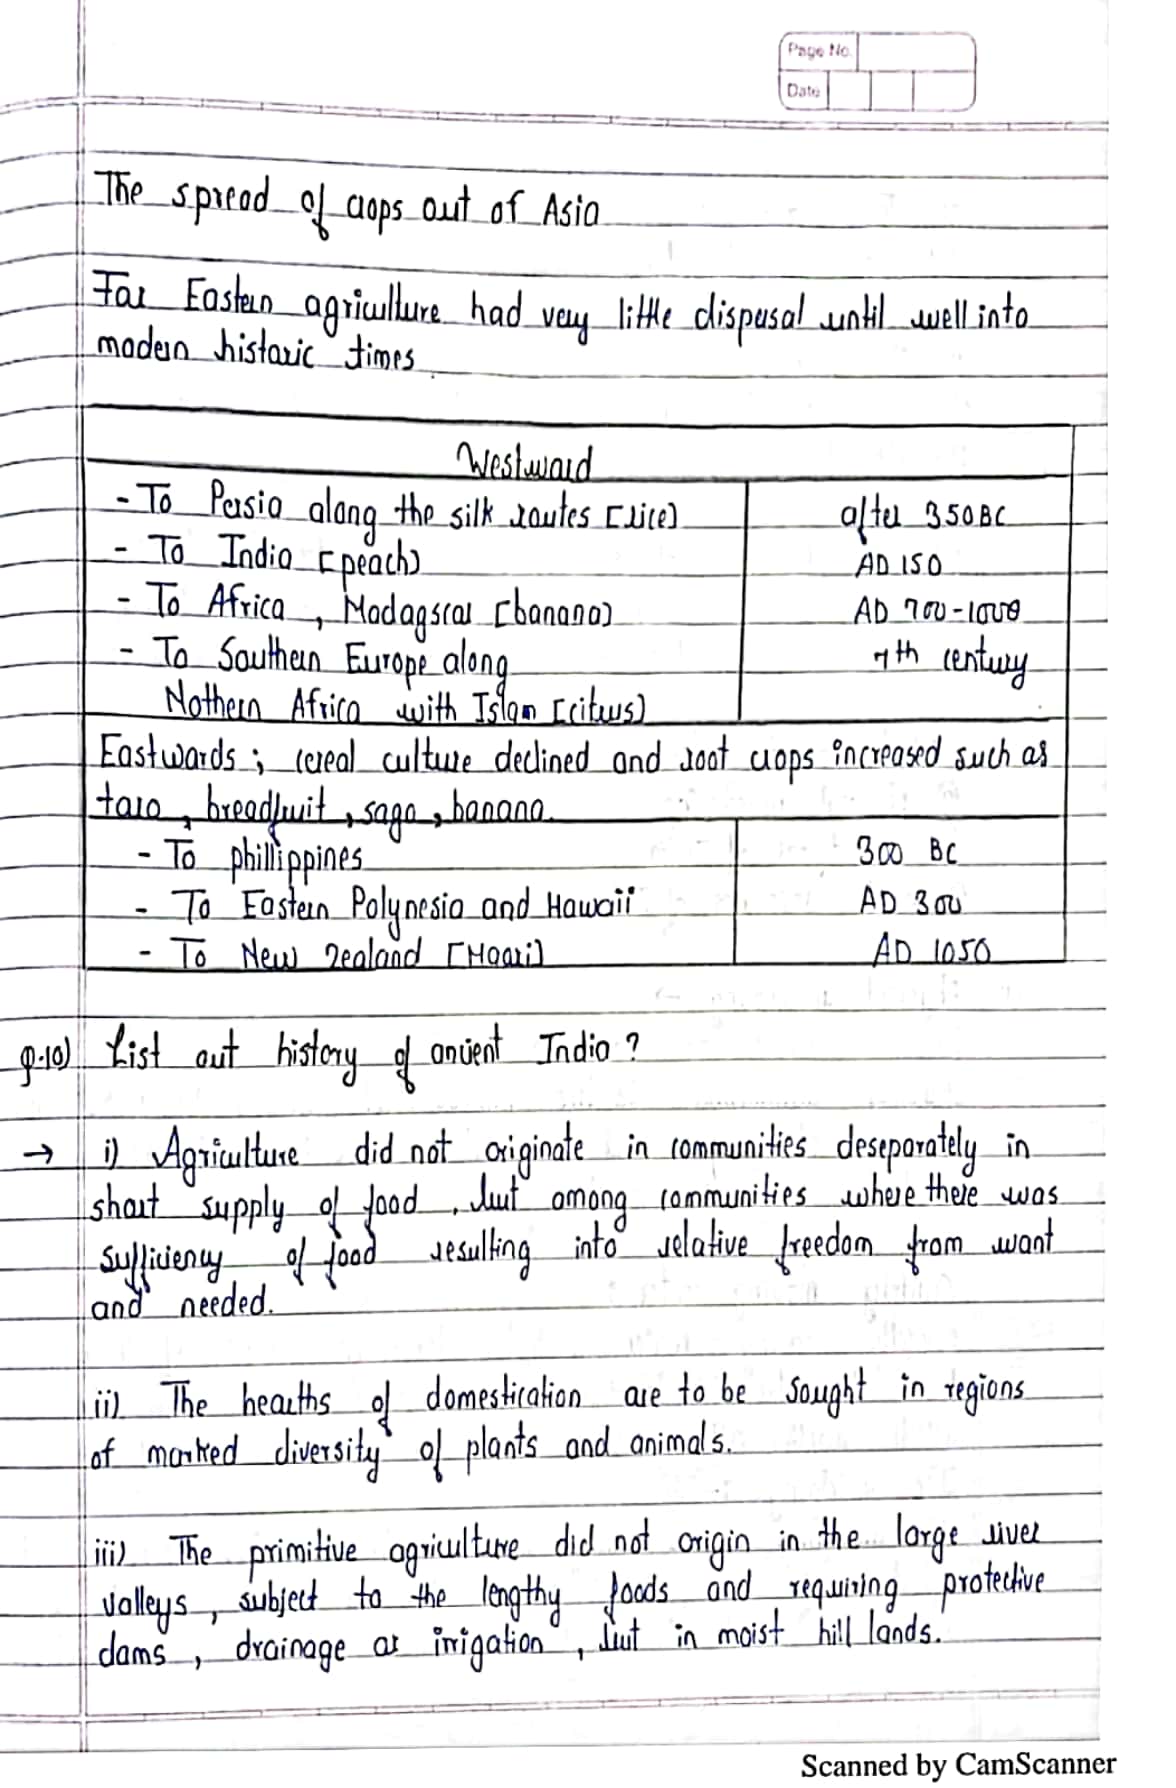 Page No.
Date
The spread of crops out of Asia
Far Eastern agriculture had very little dispusal until well into
modern historic times
Westward
- To Persia along the silk routes [rice] after 350 BC
- To India [peach] AD 150
- To Africa, Madagscar [banana] AD 700-1000
- To Southern Europe along 7th century
Nothern Africa with Islam [citrus]
Eastwards ; cereal culture declined and root crops increased such as
taro, breadfruit, sago, banana.
- To phillippines 300 BC
- To Eastern Polynesia and Hawaii AD 300
- To New Zealand [Maori] AD 1050
Q.10) List out history of ancient India ?
→ i) Agriculture did not originate in communities deseparately in
short supply of food, but among communities where there was
sufficiency of food resulting into relative freedom from want
and needed.
ii) The hearths of domestication are to be sought in regions
of marked diversity of plants and animals.
iii) The primitive agriculture did not origin in the large river
valleys, subject to the lengthy foods and requiring protective
dams, drainage or irrigation, but in moist hill lands.
Scanned by CamScanner